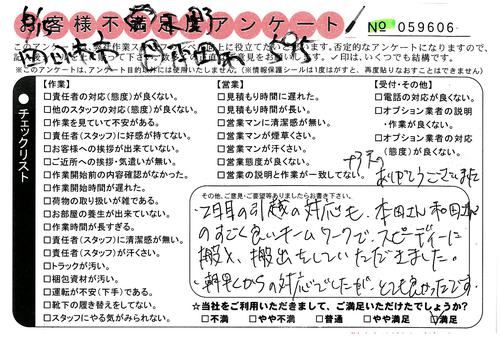 お客様不満足度アンケート
№ 059606
このアンケートは、
※このアンケートは、アンケート目的以外には使用いたしません。(※情報保護シールは1度はがすと、再度貼りなおすことはできません)
チェックリスト
【作業】
□責任者の対応(態度)が良くない。
□他のスタッフの対応(態度)が良くない。
□作業を見ていて不安がある。
□責任者(スタッフ)に好感が持てない。
□お客様への挨拶が出来ていない。
□ご近所への挨拶・気遣いが無い。
□作業開始前の内容確認がなかった。
□作業開始時間が遅れた。
□荷物の取り扱いが雑である。
□お部屋の養生が出来ていない。
□作業時間が長すぎる。
□責任者(スタッフ)に清潔感が無い。
□責任者(スタッフ)が汗くさい。
□トラックが汚い。
□梱包資材が汚い。
□運転が不安(下手)である。
□靴下の履き替えをしてない。
□スタッフにやる気がみられない。
【営業】
□見積もり時間に遅れた。
□見積もり時間が長い。
□営業マンに清潔感が無い。
□営業マンが煙草くさい。
□営業マンが汗くさい。
□営業態度が良くない。
□営業の説明と作業が一致してない。
【受付・その他】
□電話の対応が良くない。
□オプション業者の説明
・作業が良くない。
□オプション業者の対応
(態度)が良くない。
ありがとうございました
その他、ご意見・ご要望等ありましたらお書き下さい。
2日目の引越の対応も、本田さん和田さん
のすごく良いチームワークで、スピーディーに
搬入、搬出をしていただきました。
朝早くからの対応でしたが、とても良かったです
☆当社をご利用いただきまして、ご満足いただけたでしょうか?
□不満 □やや不満 □普通 □やや満足 ☑満足